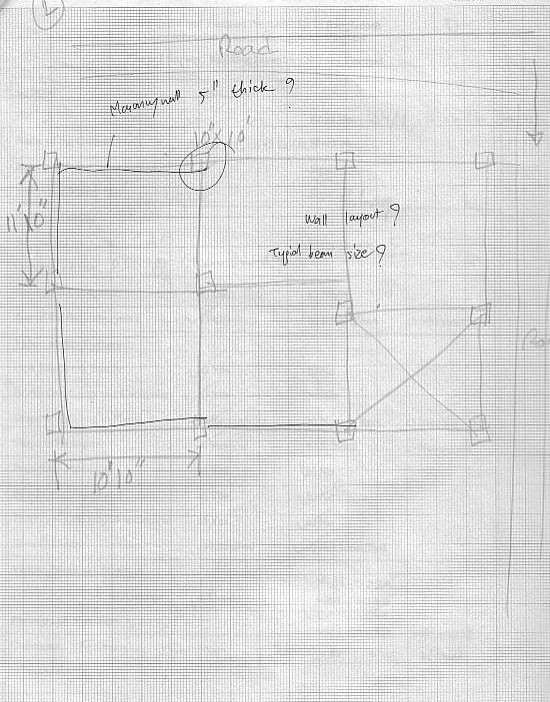 L
Road
Masonry wall 5" thick ?
10"X10"
11'X0"
Wall layout ?
Typial beam size ?
Roa
10'10"